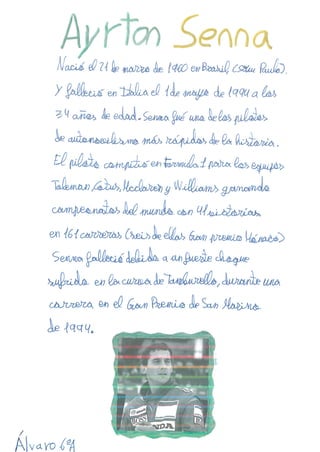 Ayrton Senna
Nació el 21 de marzo de 1960 en Brasil, (Sau Paulo).
y falleció en Italia el 1 de mayo de 1994 a los
34 años de edad. Senna fué uno de los pilotos
de automovilismo más rápidos de la historia.
El piloto compitio en Formula 1 para los equipos
Toleman, Lotus, Mcclaren y Williams ganando
campeonatos del mundo con 41 victorias
en 161 carreras (seis de ellas Gran premio Mónaco)
Senna falleció debido a un fuerte choque
sufrido en la curva de Tamburello, durante una
carrera en el Gran Premio de San Marino
de 1994.
BOSS
NDA
Álvaro 6ºA